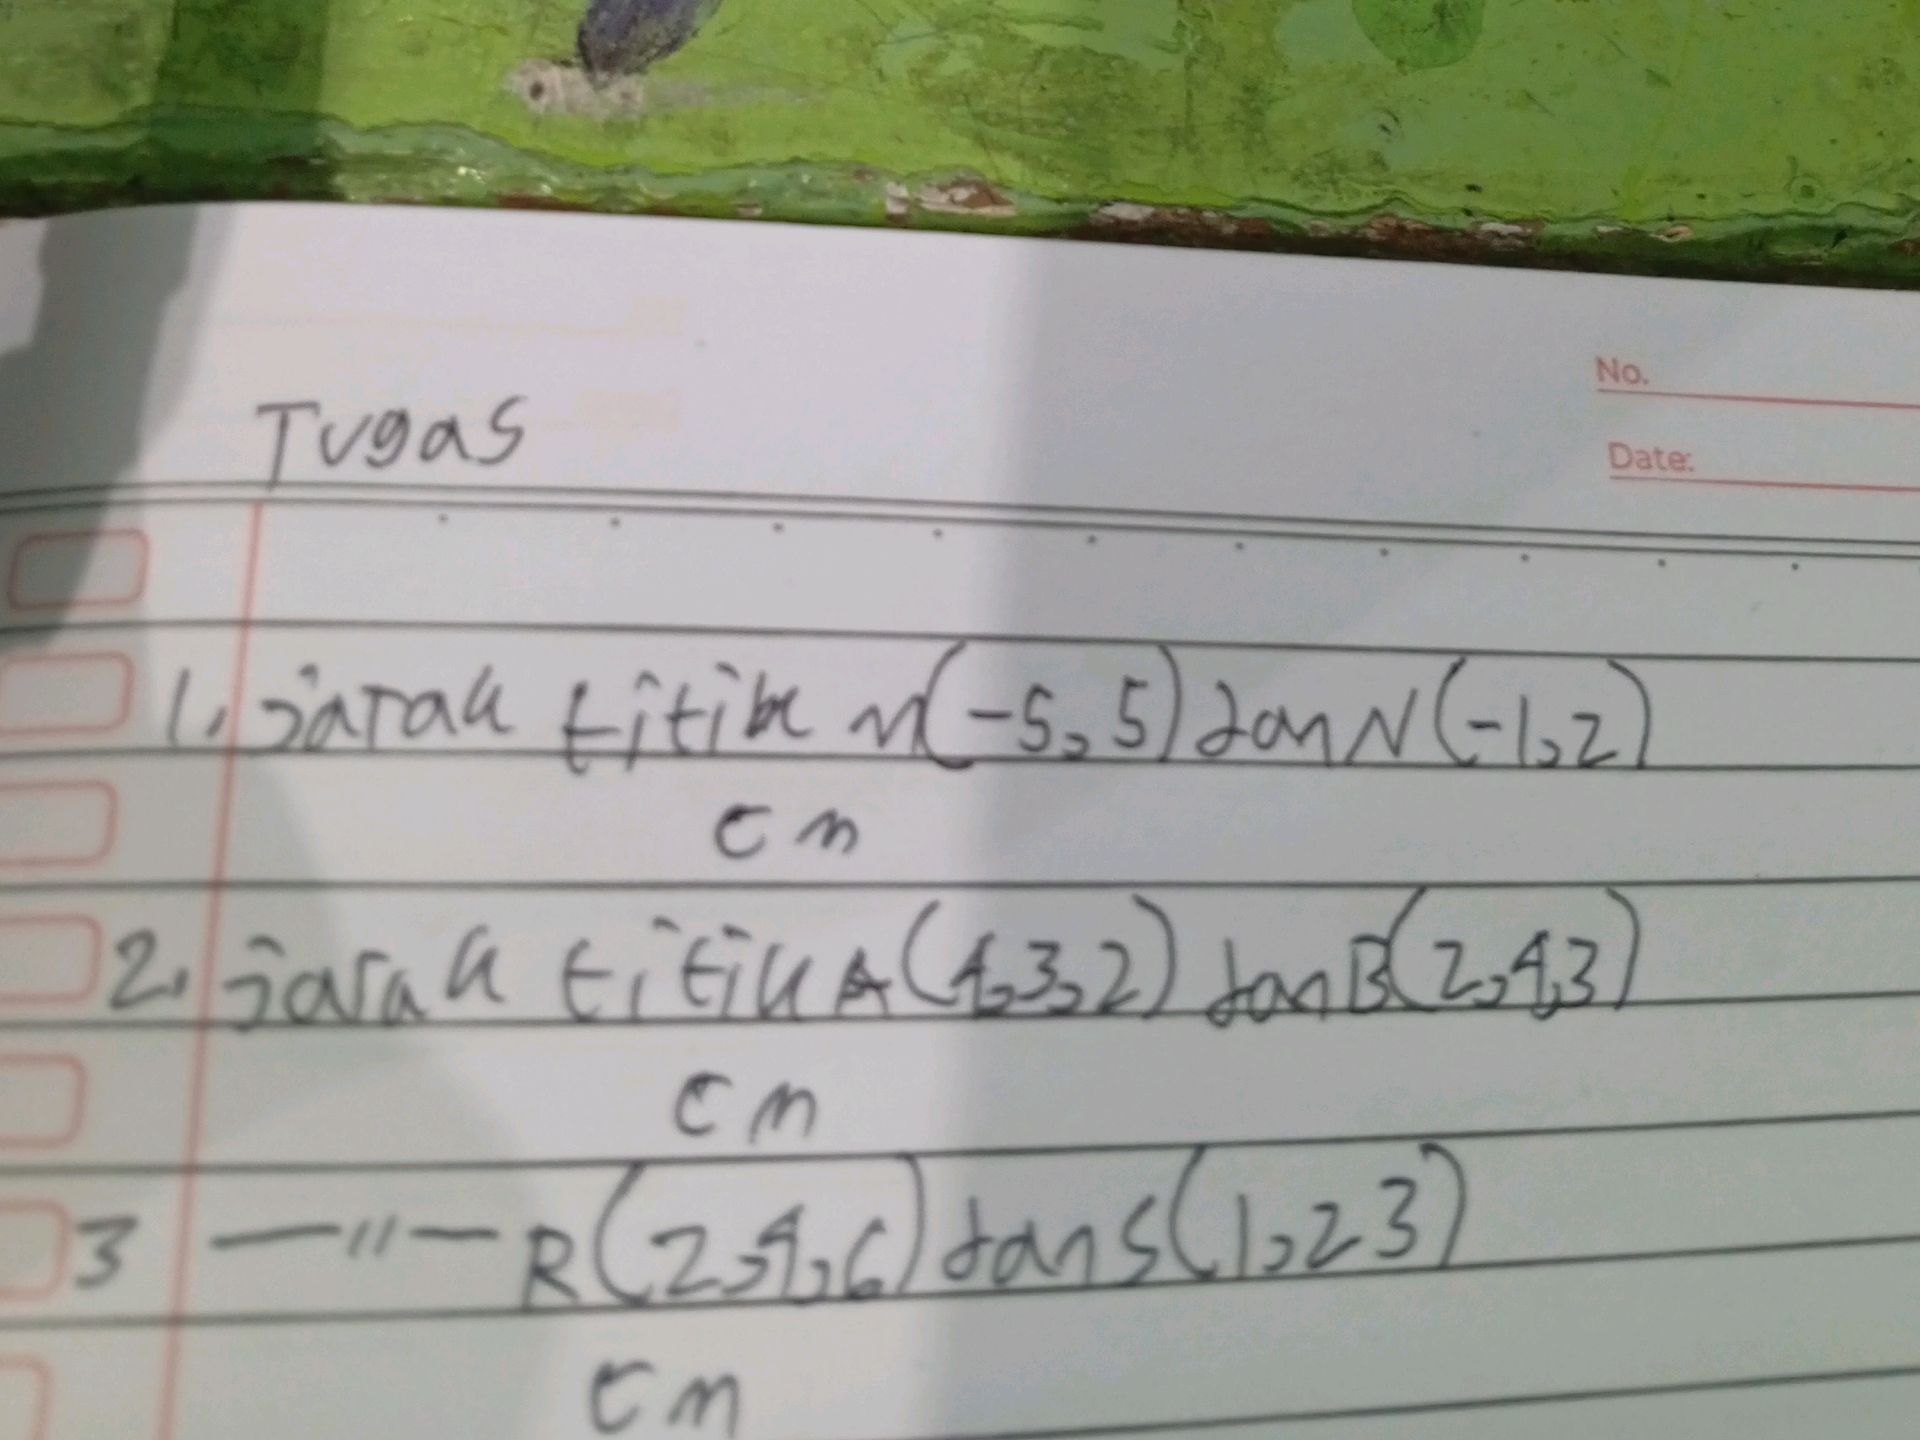 No.
Tugas
Date:
1. jarak titik M(-5,5) dan N(-1,2)
cm
2. jarak titik A(4,3,2) dan B(2,4,3)
cm
3 —〃— R(2,4,6) dan S(1,2 3)
cm